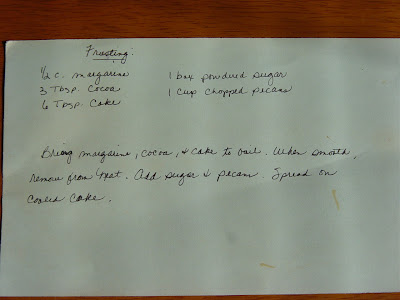 Frosting
½ c. margarine 1 box powdered sugar
3 Tbsp. Cocoa 1 Cup Chopped pecans
6 Tbsp. Coke
Bring margarine, cocoa, & coke to boil. When smooth,
remove from heat. Add sugar & pecans. Spread on
cooled cake.